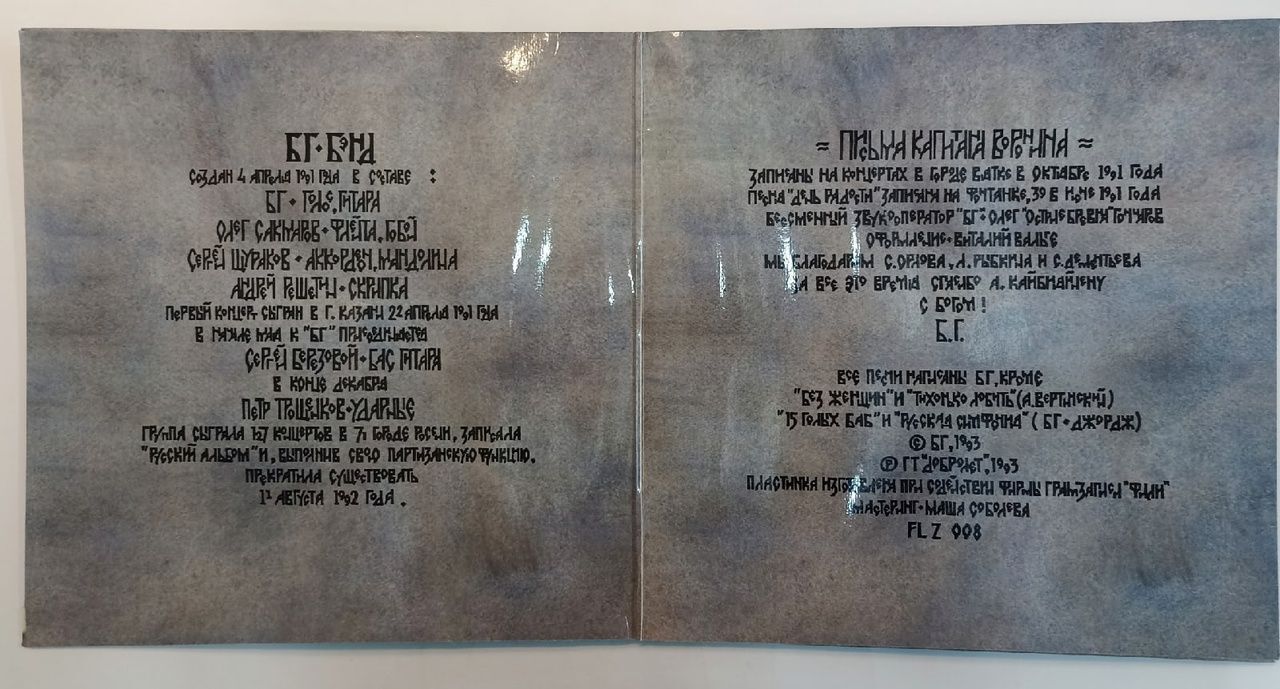 БГ·БЭНД
СОЗДАН 4 АПРЕЛЯ 1991 ГОДА В СОСТАВЕ :
БГ · ГОЛОС, ГИТАРА
ОЛЕГ САКМАРОВ · ФЛЕЙТА, ГОБОЙ
СЕРГЕЙ ЩУРАКОВ · АККОРДЕОН, МАНДОЛИНА
АНДРЕЙ РЕШЕТИН · СКРИПКА
ПЕРВЫЙ КОНЦЕРТ СЫГРАН В Г. КАЗАНИ 22 АПРЕЛЯ 1991 ГОДА
В НАЧАЛЕ МАЯ К "БГ" ПРИСОЕДИНЯЕТСЯ
СЕРГЕЙ БЕРЕЗОВОЙ · БАС ГИТАРА
В КОНЦЕ ДЕКАБРЯ
ПЕТР ТРОЩЕНКОВ · УДАРНЫЕ
ГРУППА СЫГРАЛА 167 КОНЦЕРТОВ В ГОРОДЕ РОССИИ, ЗАПИСАЛА
"РУССКИЙ АЛЬБОМ" И, ВЫПОЛНИВ СВОЮ ПАРТИЗАНСКУЮ ФУНКЦИЮ,
ПРЕКРАТИЛА СУЩЕСТВОВАТЬ
АВГУСТА 1992 ГОДА .
≈ ПИСЬМА КАПИТАНА ВОРОНИНА ≈
ЗАПИСАНЫ НА КОНЦЕРТАХ В ГОРОДЕ ВЯТКЕ В ОКТЯБРЕ 1991 ГОДА
ПЕСНЯ "ДЕНЬ РАДОСТИ" ЗАПИСАНА НА ФОНТАНКЕ, 39 В ИЮНЕ 1991 ГОДА
БЕССМЕННЫЙ ЗВУКООПЕРАТОР "БГ": ОЛЕГ "ОСТРИЕ БРЕВНА" ГОНЧАРОВ
ОФОРМЛЕНИЕ · ВИТАЛИЙ ВАЛЬГЕ
МЫ БЛАГОДАРИМ С. ОРЛОВА, А. РЫБКИНА И С. ДЕМЕНТЬЕВА
ЗА ВСЕ ЭТО ВРЕМЯ СПАСИБО А. КАЙБИЯЙНЕНУ
С БОГОМ !
Б.Г.
ВСЕ ПЕСНИ НАПИСАНЫ БГ, КРОМЕ
"БЕЗ ЖЕНЩИН" И "ТИХОНЬКО ЛЮБИТЬ" (А. ВЕРТИНСКИЙ)
"15 ГОЛЫХ БАБ" И "РУССКАЯ СИМФОНИЯ" ( БГ · ДЖОРДЖ)
© БГ, 1993
℗ ГТ "ДОБРОЛЕТ", 1993
ПЛАСТИНКА ИЗГОТОВЛЕНА ПРИ СОДЕЙСТВИИ ФИРМЫ ГРАМЗАПИСИ "ФИЛИ"
МАСТЕРИНГ · МАША СОБОЛЕВА
FL Z 008